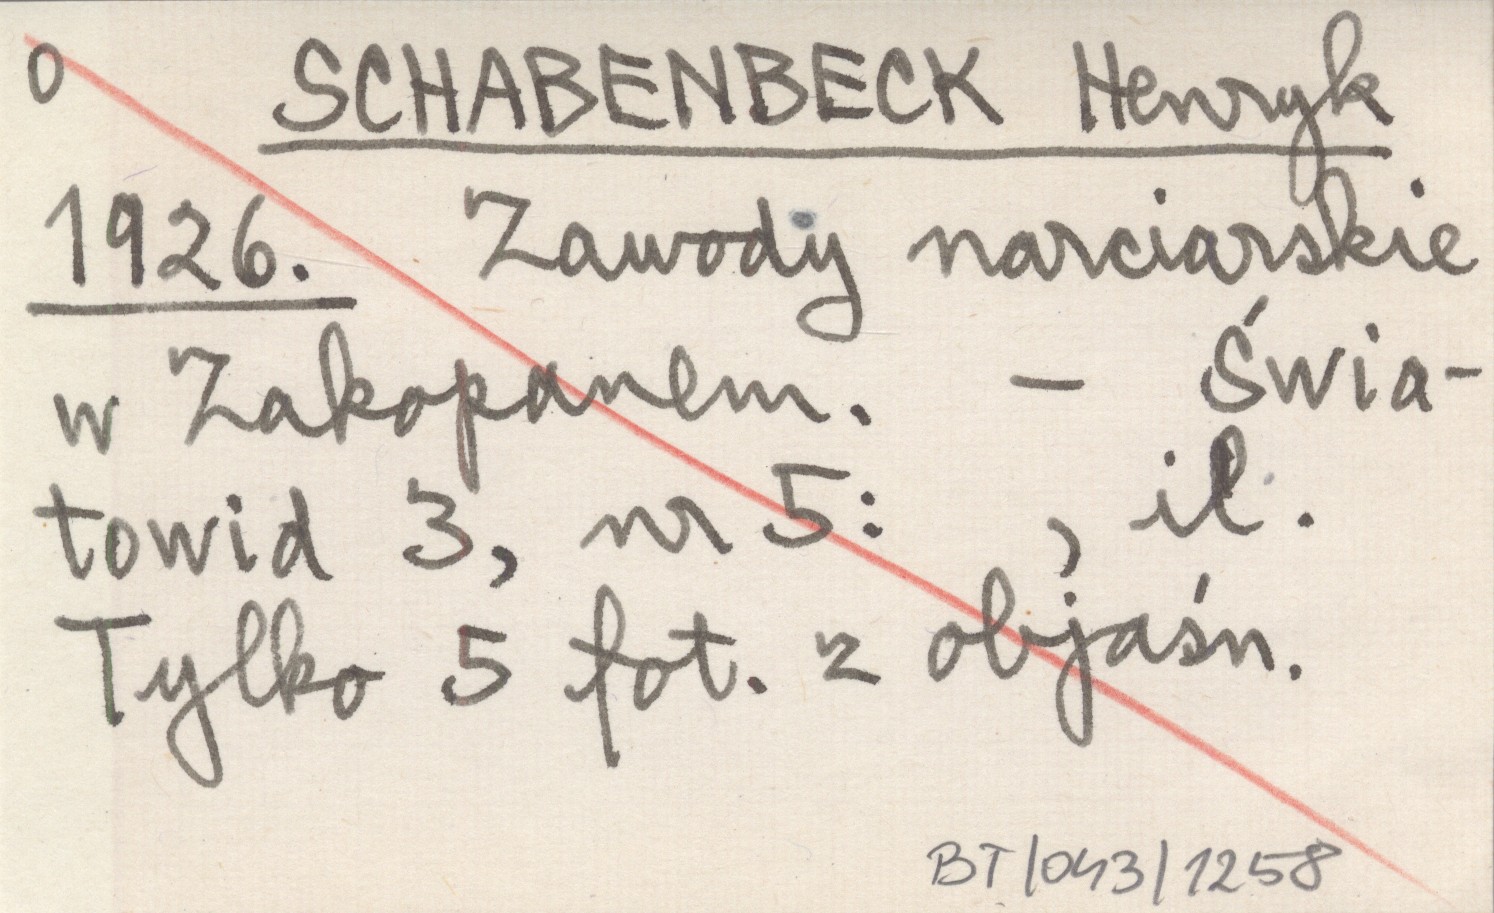 0 SCHABENBECK Henryk
1926. Zawody narciarskie
w Zakopanem. - Świa-
towid 3, nr 5: , il.
Tylko 5 fot. z objaśn.
BT/043/1258